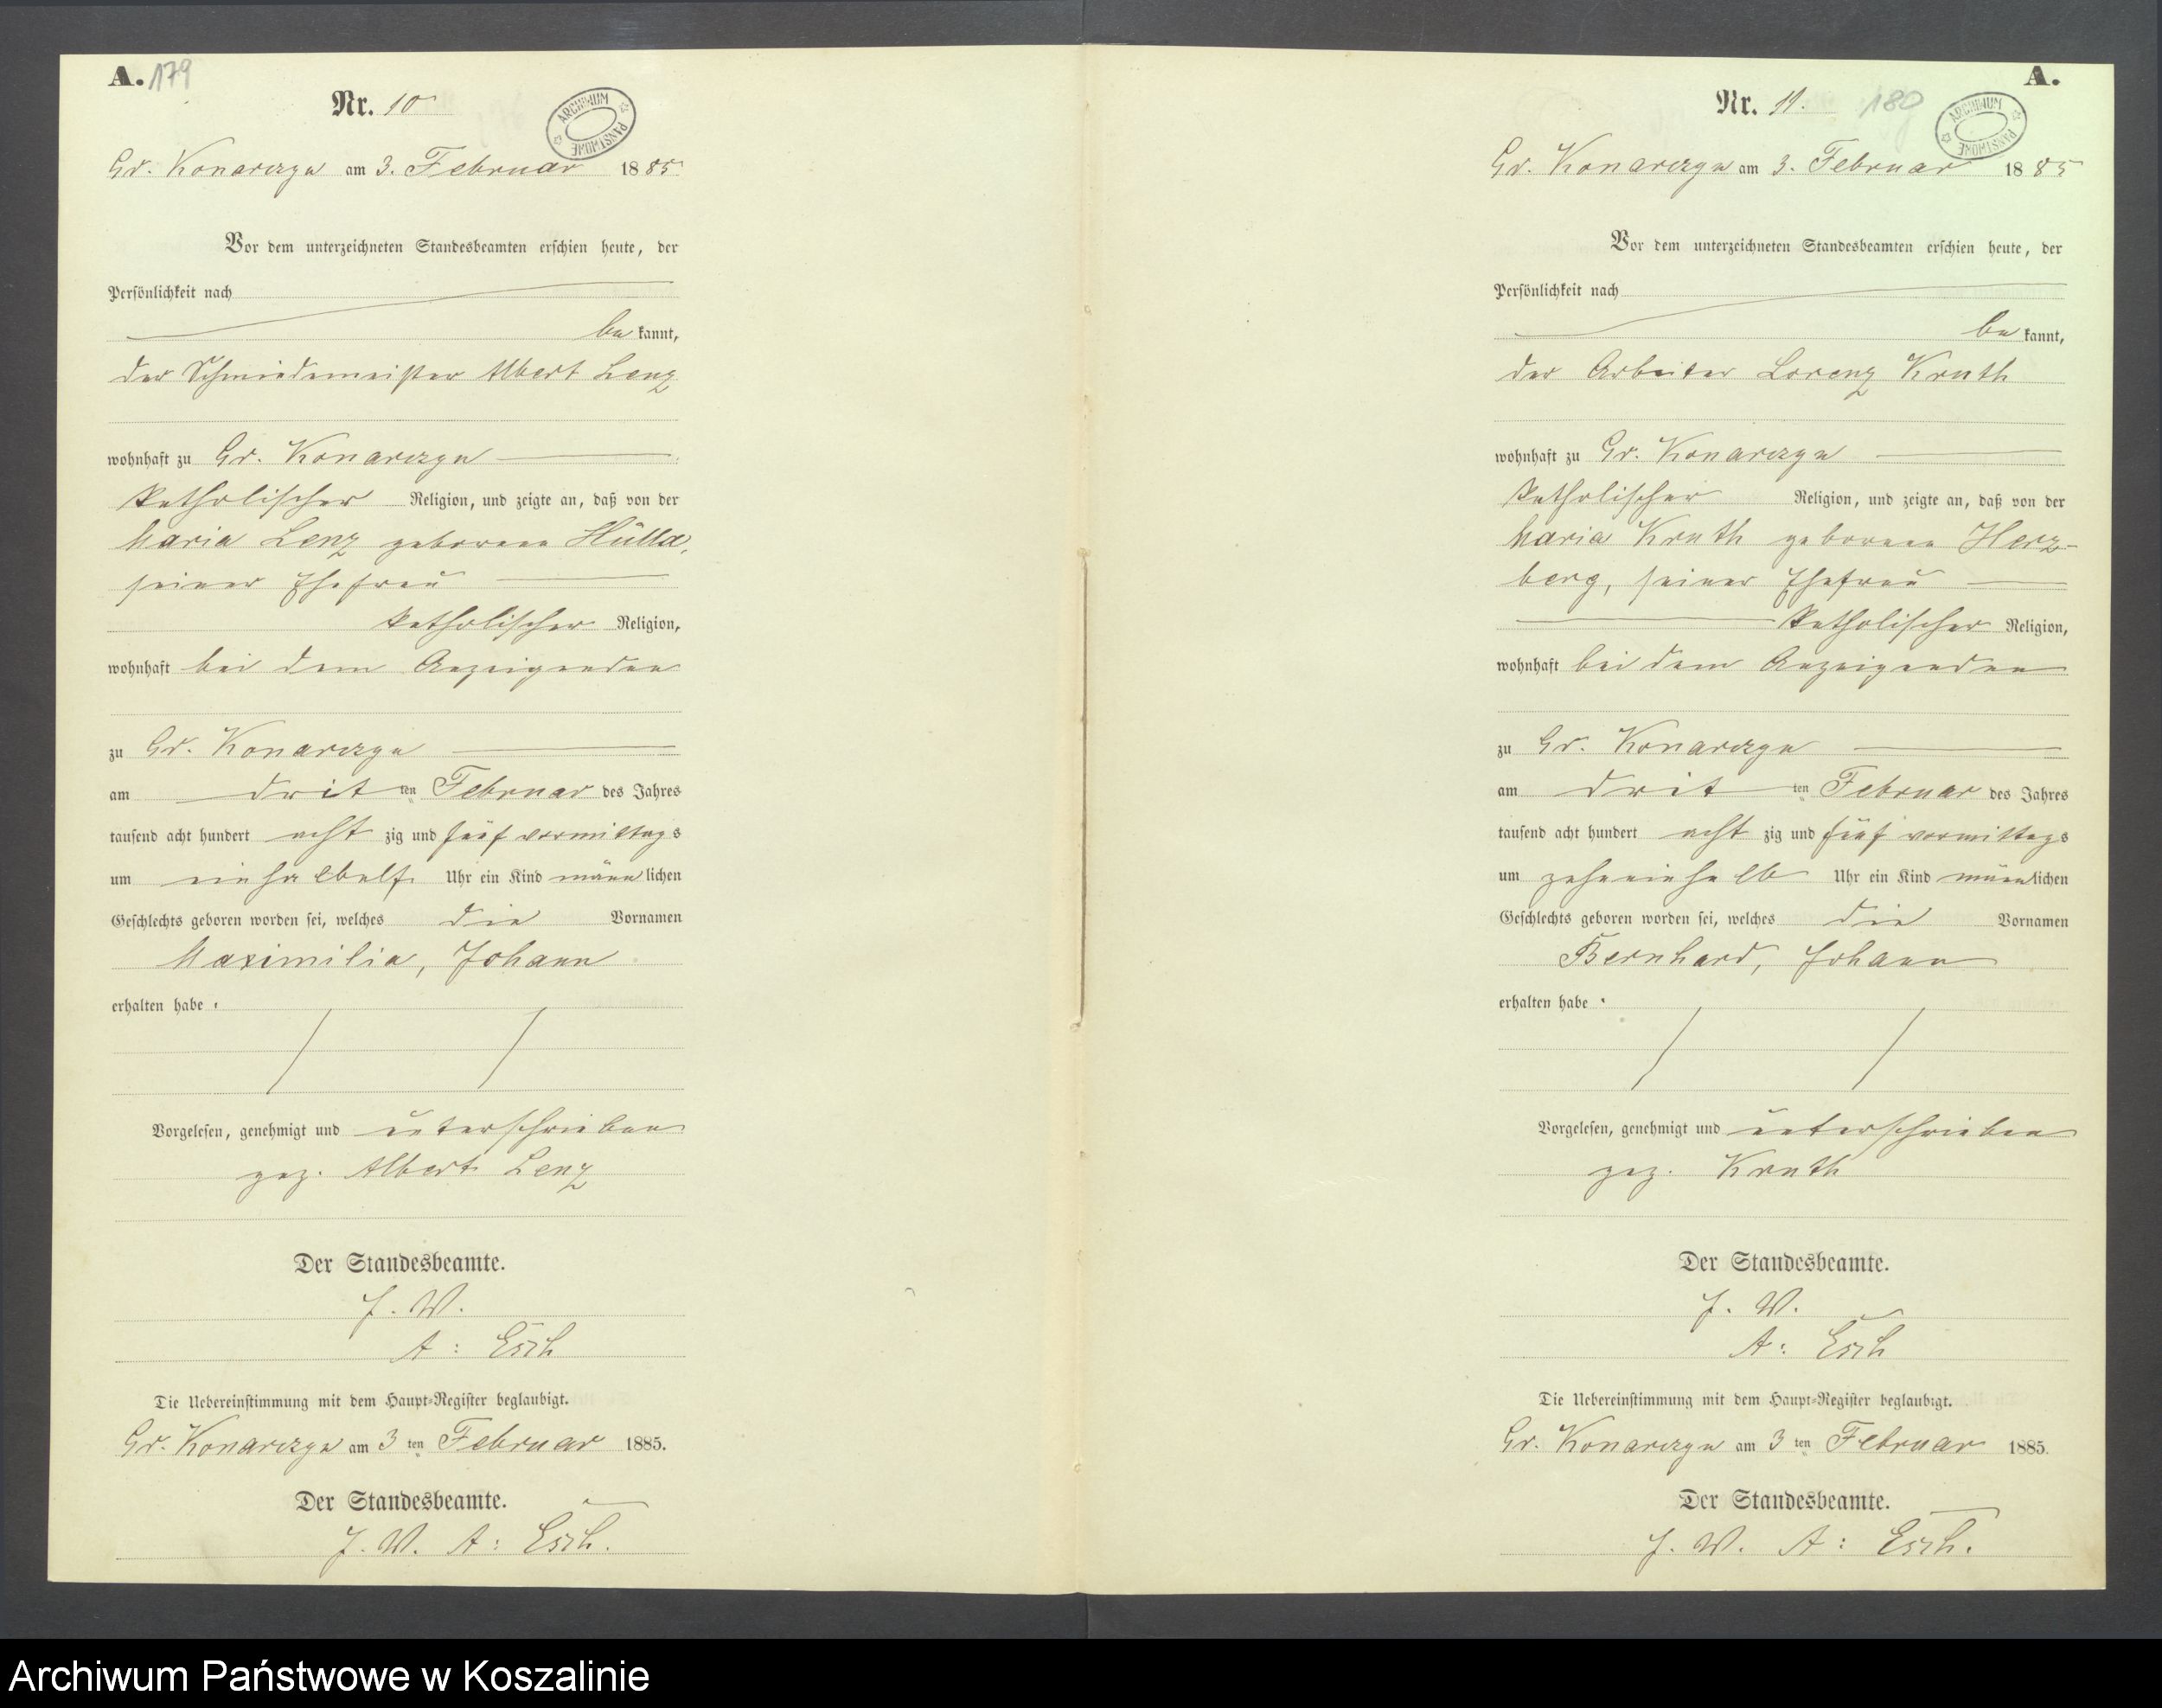 A. 179
Nr. 10
ARCHIWUM PAŃSTWOWE
Gr. Konarczyn am 3. Februar 1885
Vor dem unterzeichneten Standesbeamten erschien heute, der
Persönlichkeit nach
bekannt,
der Schmiedemeister Albert Lenz
wohnhaft zu Gr. Konarczyn
katholischer Religion, und zeigte an, daß von der
Maria Lenz geborene Hülla,
seiner Ehefrau
katholischer Religion,
wohnhaft bei dem Anzeigenden
zu Gr. Konarczyn
am dritten Februar des Jahres
tausend acht hundert achtzig und fünf vormittags
um Uhr ein Kind männlichen
Geschlechts geboren worden sei, welches die Vornamen
Maximilia, Johann
erhalten habe.
Vorgelesen, genehmigt und unterschrieben
gez. Albert Lenz
Der Standesbeamte.
J. W.
A: Esch
Die Uebereinstimmung mit dem Haupt-Register beglaubigt.
Gr. Konarczyn am 3ten Februar 1885.
Der Standesbeamte.
J. W. A: Esch.
A.
Nr. 11. 180
ARCHIWUM PAŃSTWOWE
Gr. Konarczyn am 3. Februar 1885
Vor dem unterzeichneten Standesbeamten erschien heute, der
Persönlichkeit nach
bekannt,
der Arbeiter Lorenz Kruth
wohnhaft zu Gr. Konarczyn
katholischer Religion, und zeigte an, daß von der
Maria Kruth geborene Herz-
berg, seiner Ehefrau
katholischer Religion,
wohnhaft bei dem Anzeigenden
zu Gr. Konarczyn
am dritten Februar des Jahres
tausend acht hundert achtzig und fünf vormittags
um zehneinhalb Uhr ein Kind männlichen
Geschlechts geboren worden sei, welches die Vornamen
Bernhard, Johann
erhalten habe.
Vorgelesen, genehmigt und unterschrieben
gez. Kruth
Der Standesbeamte.
J. W.
A: Esch
Die Uebereinstimmung mit dem Haupt-Register beglaubigt.
Gr. Konarczyn am 3ten Februar 1885.
Der Standesbeamte.
J. W. A: Esch.
Archiwum Państwowe w Koszalinie